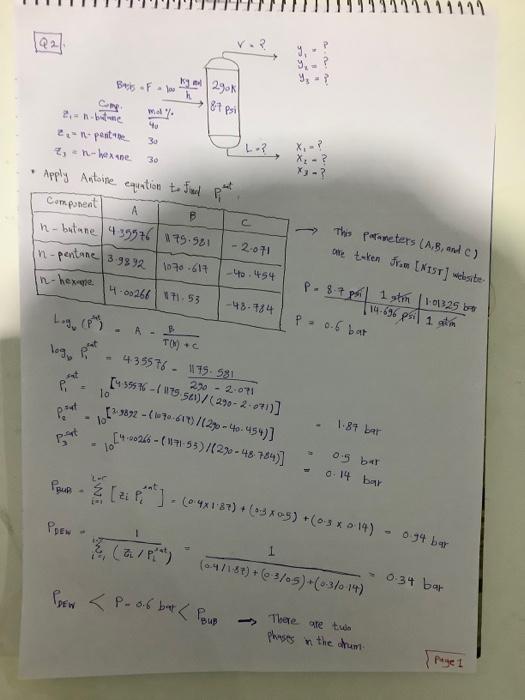 Q2.
V = ?
y₁ = ?
y₂ = ?
y₃ = ?
Basis = F = 100 kg mol / h
290K
87 psi
Comp. mol %
z₁ = n-butane 40
z₂ = n-pentane 30
z₃ = n-hexane 30
L = ?
x₁ = ?
x₂ = ?
x₃ = ?
* Apply Antoine equation to find Pᵢ^sat.
Component A B C
n-butane 4.35576 1175.581 -2.071
n-pentane 3.9892 1070.617 -40.454
n-hexane 4.00266 1171.53 -48.784
→ This parameters (A, B, and C)
are taken from [NIST] website.
P = 8.7 psi | 1 atm | 1.01325 bar
14.696 psi | 1 atm
P = 0.6 bar
Log₁₀ (P^sat) = A - B / T(K) + C
log₁₀ P₁^sat = 4.35576 - 1175.581 / 290 - 2.071
P₁^sat = 10^[4.35576 - (1175.581)/(290-2.071)] = 1.87 bar
P₂^sat = 10^[3.9892 - (1070.617)/(290-40.454)] = 0.5 bar
P₃^sat = 10^[4.00266 - (1171.53)/(290-48.784)] = 0.14 bar
P_BUB = Σ [zᵢ Pᵢ^sat] = (0.4 x 1.87) + (0.3 x 0.5) + (0.3 x 0.14) = 0.94 bar
P_DEW = 1 / Σ (zᵢ / Pᵢ^sat) = 1 / (0.4/1.87) + (0.3/0.5) + (0.3/0.14) = 0.34 bar
P_DEW < P = 0.6 bar < P_BUB → There are two
phases in the drum.
Page 1